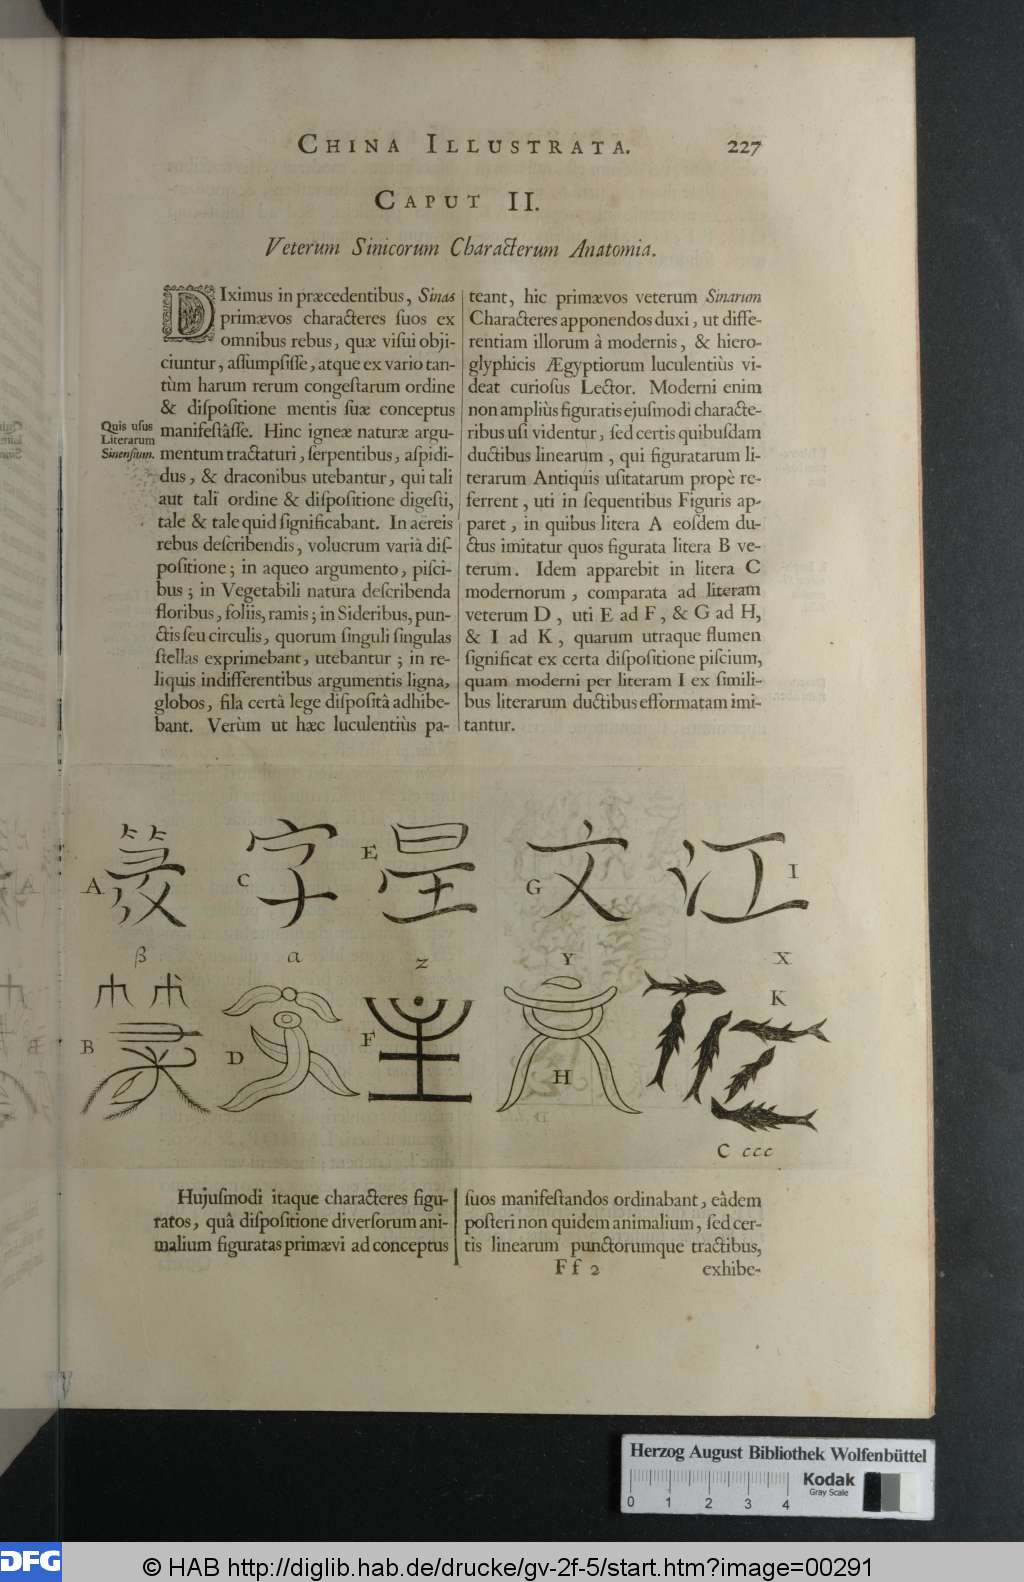 CHINA ILLUSTRATA. 227
CAPUT II.
Veterum Sinicorum Characterum Anatomia.
DIximus in præcedentibus, Sinas
primævos characteres ſuos ex
omnibus rebus, quæ viſui obji-
ciuntur, aſſumpſiſſe, atque ex vario tan-
tùm harum rerum congeſtarum ordine
& diſpoſitione mentis ſuæ conceptus
manifeſtâſſe. Hinc igneæ naturæ argu-
mentum tractaturi, ſerpentibus, aſpidi-
dus, & draconibus utebantur, qui tali
aut tali ordine & diſpoſitione digeſti,
tale & tale quid ſignificabant. In aëreis
rebus deſcribendis, volucrum variâ diſ-
poſitione; in aqueo argumento, piſci-
bus; in Vegetabili natura deſcribenda
floribus, foliis, ramis; in Sideribus, pun-
ctis ſeu circulis, quorum ſinguli ſingulas
ſtellas exprimebant, utebantur; in re-
liquis indifferentibus argumentis ligna,
globos, fila certâ lege diſpoſitâ adhibe-
bant. Verùm ut hæc luculentiùs pa-
Quis uſus
Literarum
Sinenſium.
teant, hic primævos veterum Sinarum
Characteres apponendos duxi, ut diffe-
rentiam illorum à modernis, & hiero-
glyphicis Ægyptiorum luculentiùs vi-
deat curioſus Lector. Moderni enim
non ampliùs figuratis ejuſmodi characte-
ribus uſi videntur, ſed certis quibuſdam
ductibus linearum, qui figuratarum li-
terarum Antiquis uſitatarum propè re-
ferrent, uti in ſequentibus Figuris ap-
paret, in quibus litera A eoſdem du-
ctus imitatur quos figurata litera B ve-
terum. Idem apparebit in litera C
modernorum, comparata ad literam
veterum D, uti E ad F, & G ad H,
& I ad K, quarum utraque flumen
ſignificat ex certa diſpoſitione piſcium,
quam moderni per literam I ex ſimili-
bus literarum ductibus efformatam imi-
tantur.
A C 字 E G 文 江 I
β α Z Y X
B D F H K
C ccc
Hujuſmodi itaque characteres figu-
ratos, quâ diſpoſitione diverſorum ani-
malium figuratas primævi ad conceptus
ſuos manifeſtandos ordinabant, eâdem
poſteri non quidem animalium, ſed cer-
tis linearum punctorumque tractibus,
Ff 2 exhibe-
Herzog August Bibliothek Wolfenbüttel
Kodak
Gray Scale
0 1 2 3 4
DFG © HAB http://diglib.hab.de/drucke/gv-2f-5/start.htm?image=00291